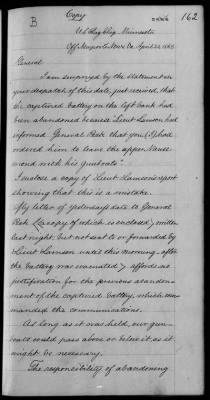 Copy
B
162
U.S. Flag Ship Minnesota
Off Newport News Va. April 22, 1863
General
I am surprised by the statement in
your despatch of this date, just received, that
the captured battery on the left bank had
been abandoned because Lieut Lamson had
informed General Peck that you (I) had
ordered him to leave the upper Nanse
mond with his gunboats".
I enclose a copy of Lieut Lamson's report
showing that this is a mistake.
My letter of yesterday's date to General
Peck (a copy of which is enclosed) written
last night, but not sent to or forwarded by
Lieut Lamson until this morning, after
the battery was evacuated, affords no
justification for the previous abandon-
ment of the captured battery, which com-
manded the communications.
As long as it was held, our gun-
boats could pass above or below it, as it
might be necessary.
The responsibility of abandoning